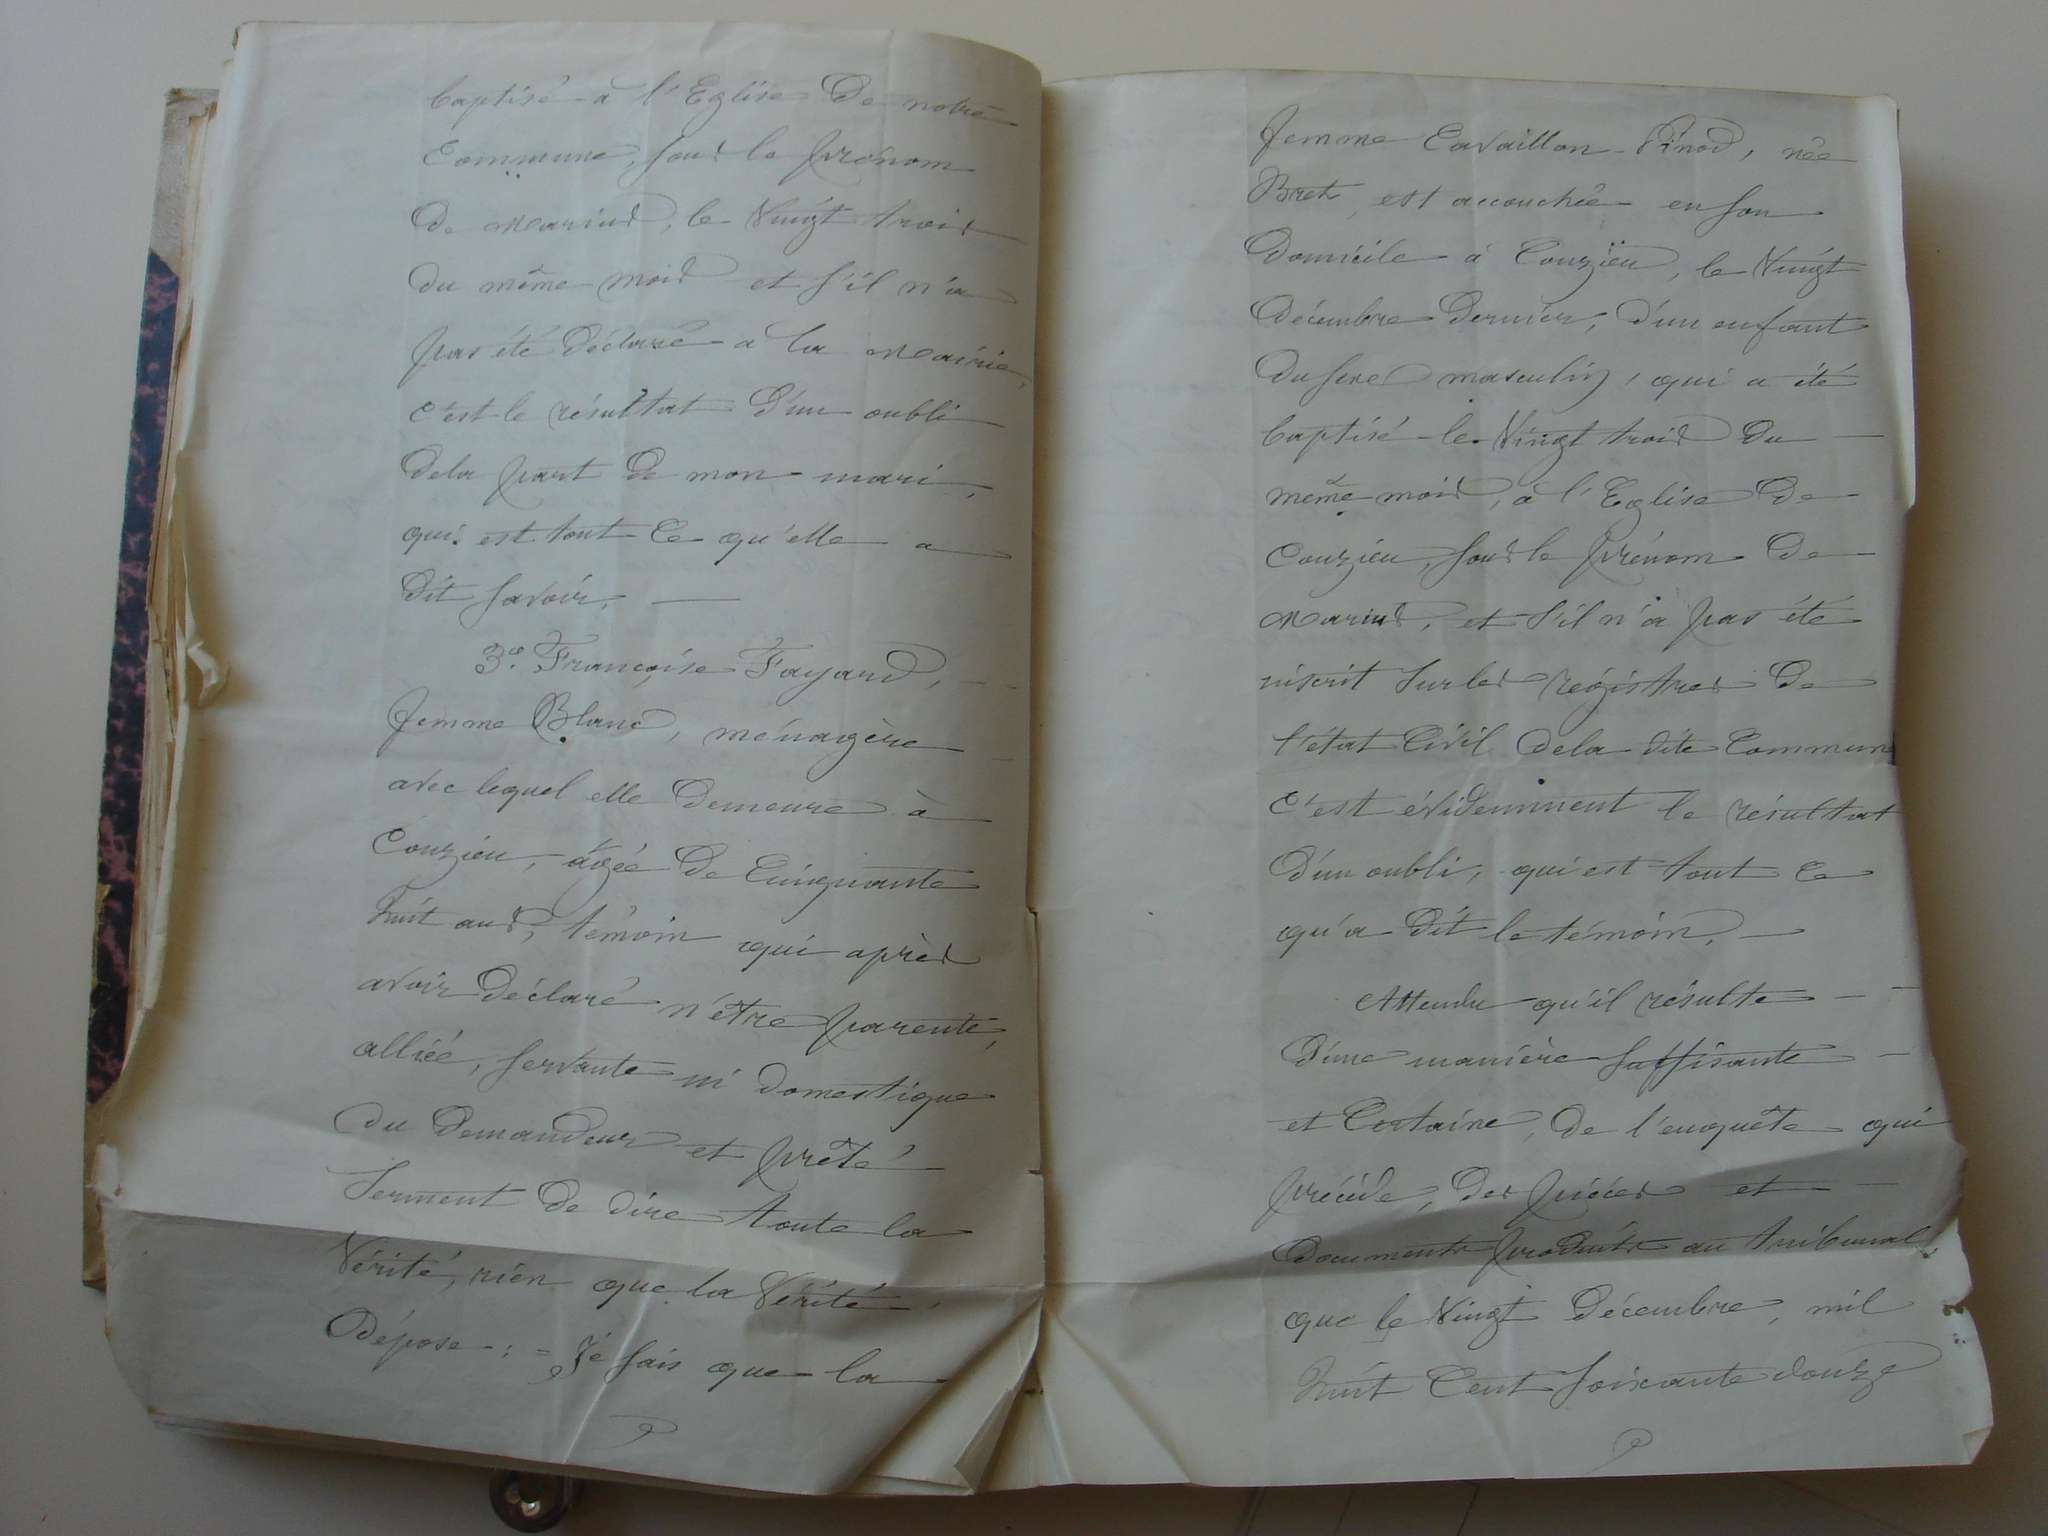 baptisé à l'Eglise de notre
Commune, sous le prénom
de Marius, le Vingt trois
du même mois et s'il n'a
pas été déclaré à la Mairie,
c'est le résultat d'un oubli
dela part de mon mari,
qui est tout ce qu'elle a
dit savoir.
3e. Françoise Fayard,
femme Blanc, ménagère
avec lequel elle demeure à
Couzieu, âgée de Cinquante
huit ans, témoin qui après
avoir déclaré n'être parente,
alliée, servante ni domestique
du demandeur et prêté
Serment de dire toute la
Vérité, rien que la Vérité
dépose : = Je sais que la
femme Cavaillon-Pinod, née
Bret, est accouchée en son
domicile à Couzieu, le Vingt
décembre dernier, d'un enfant
du sexe masculin, qui a été
baptisé le Vingt trois du
même mois, à l'Eglise de
Couzieu, sous le prénom de
Marius, et s'il n'a pas été
inscrit sur les régistres de
l'état Civil dela dite Commune
c'est évidemment le résultat
d'un oubli, qui est tout ce
qu'a dit le témoin.
Attendu qu'il résulte
d'une manière suffisante
et Certaine, de l'enquête qui
précède, des pièces et
documents produits au tribunal
que le Vingt décembre, mil
huit Cent soixante douze